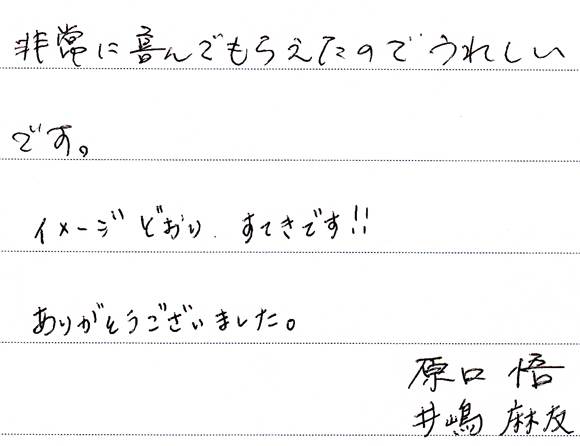 非常に喜んでもらえたのでうれしい
です。
イメージどおり、すてきです!!
ありがとうございました。
原口 悟
井嶋 麻友